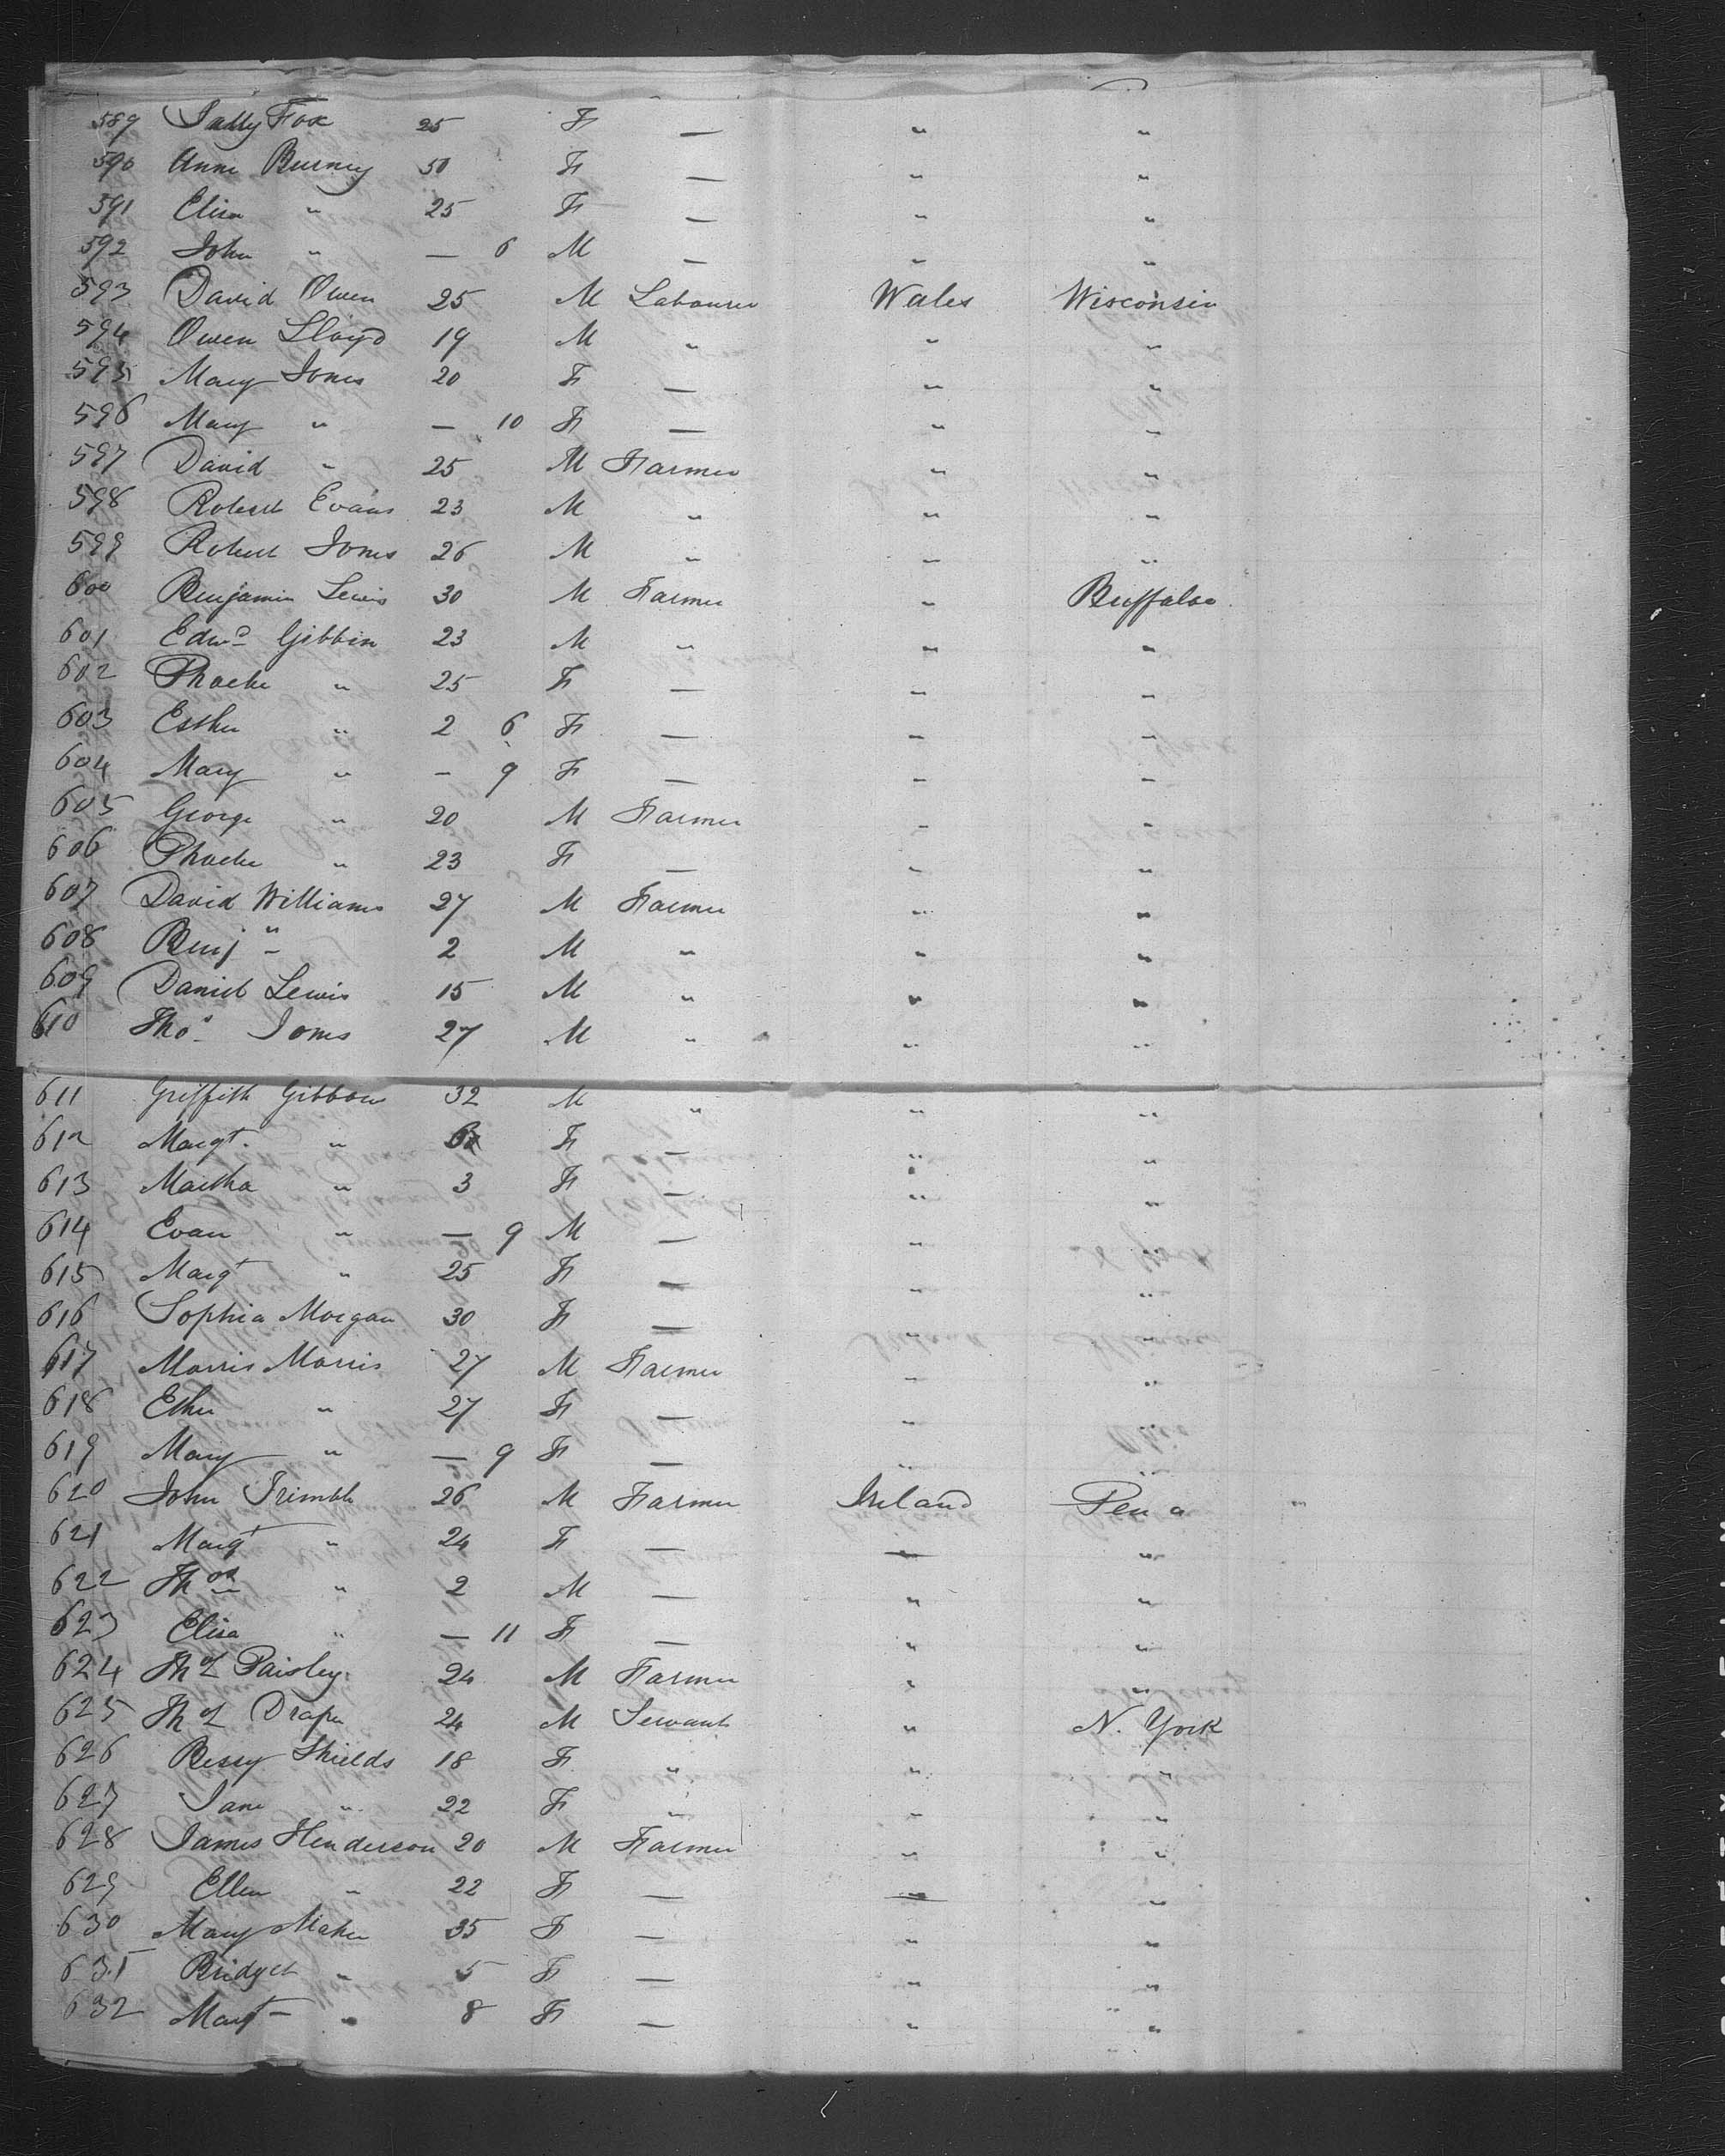 589 Sally Fox 25 F — " "
590 Anne Burney 50 F — " "
591 Eliza " 25 F — " "
592 John " — 6 M — " "
593 David Owen 25 M Labourer Wales Wisconsin
594 Owen Lloyd 19 M " " "
595 Mary Jones 20 F — " "
596 Mary " — 10 F — " "
597 David " 25 M Farmer " "
598 Robert Evans 23 M " " "
599 Robert Jones 26 M " " "
600 Benjamin Lewis 30 M Farmer " Buffaloe
601 Edwd Gibbin 23 M " " "
602 Phoebe " 25 F — " "
603 Esther " 2 6 F — " "
604 Mary " — 9 F — " "
605 George " 20 M Farmer " "
606 Phoebe " 23 F — " "
607 David Williams 27 M Farmer " "
608 Benjn 2 M " " "
609 Daniel Lewis 15 M " " "
610 Thos Jones 27 M " " "
611 Griffith Gibbon 32 M " " "
612 Margt. " F — " "
613 Martha " 3 F — " "
614 Evan " — 9 M — " "
615 Margt " 25 F — " "
616 Sophia Morgan 30 F — " "
617 Morris Morris 27 M Farmer " "
618 Esther " 27 F — " "
619 Mary " — 9 F — " "
620 John Trimble 26 M Farmer Ireland Pena "
621 Margt " 24 F — " "
622 Thos " 2 M — " "
623 Eliza " — 11 F — " "
624 Thos Paisley 24 M Farmer " "
625 Thos Draper 24 M Servant " N. York
626 Bessy Shields 18 F " " "
627 Jane " 22 F " " "
628 James Henderson 20 M Farmer " "
629 Ellen " 22 F — " "
630 Mary Maher 35 F — " "
631 Bridget " 5 F — " "
632 Margt " 8 F — " "